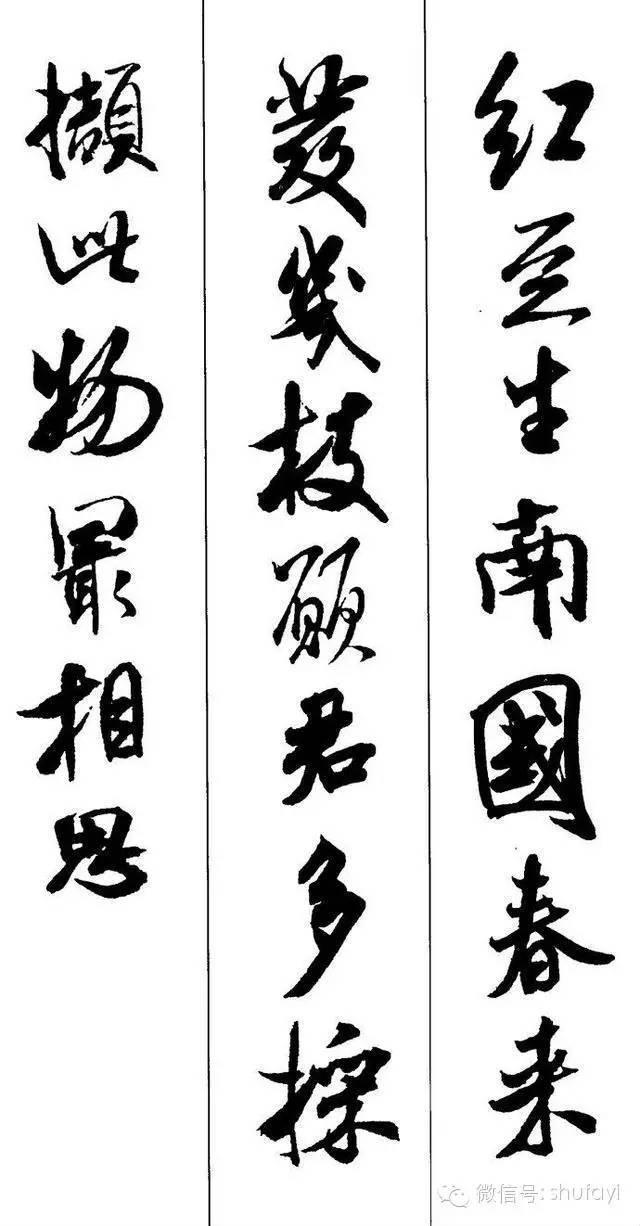 红豆生南國春来
發幾枝願君多採
擷此物最相思
微信号: shufayi